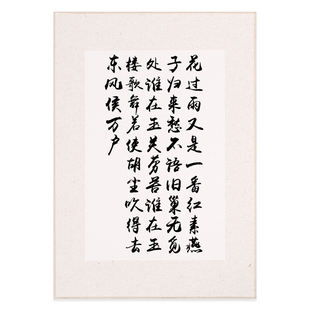 花过雨又是一番红素燕
子归来愁不语旧巢无觅
处谁在玉关劳苦谁在玉
楼歌舞若使胡尘吹得去
东风侯万户